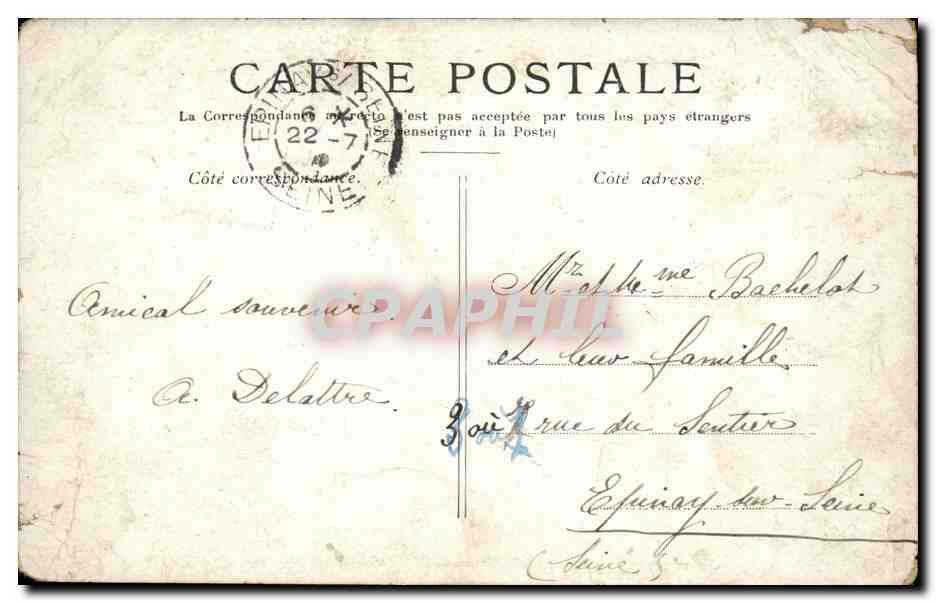 CARTE POSTALE
La Correspondance au recto n'est pas acceptée par tous les pays étrangers
(Se renseigner à la Poste)
EPINAY-S/-SEINE
6 X
22 -7
SEINE
Côté correspondance.
Côté adresse.
Amical souvenir.
A. Delattre.
Mr et Mme Bachelot
et leur famille
3 ou 7 rue du Sentier
Epinay-sur-Seine
(Seine)
3 ou 7
CPAPHIL